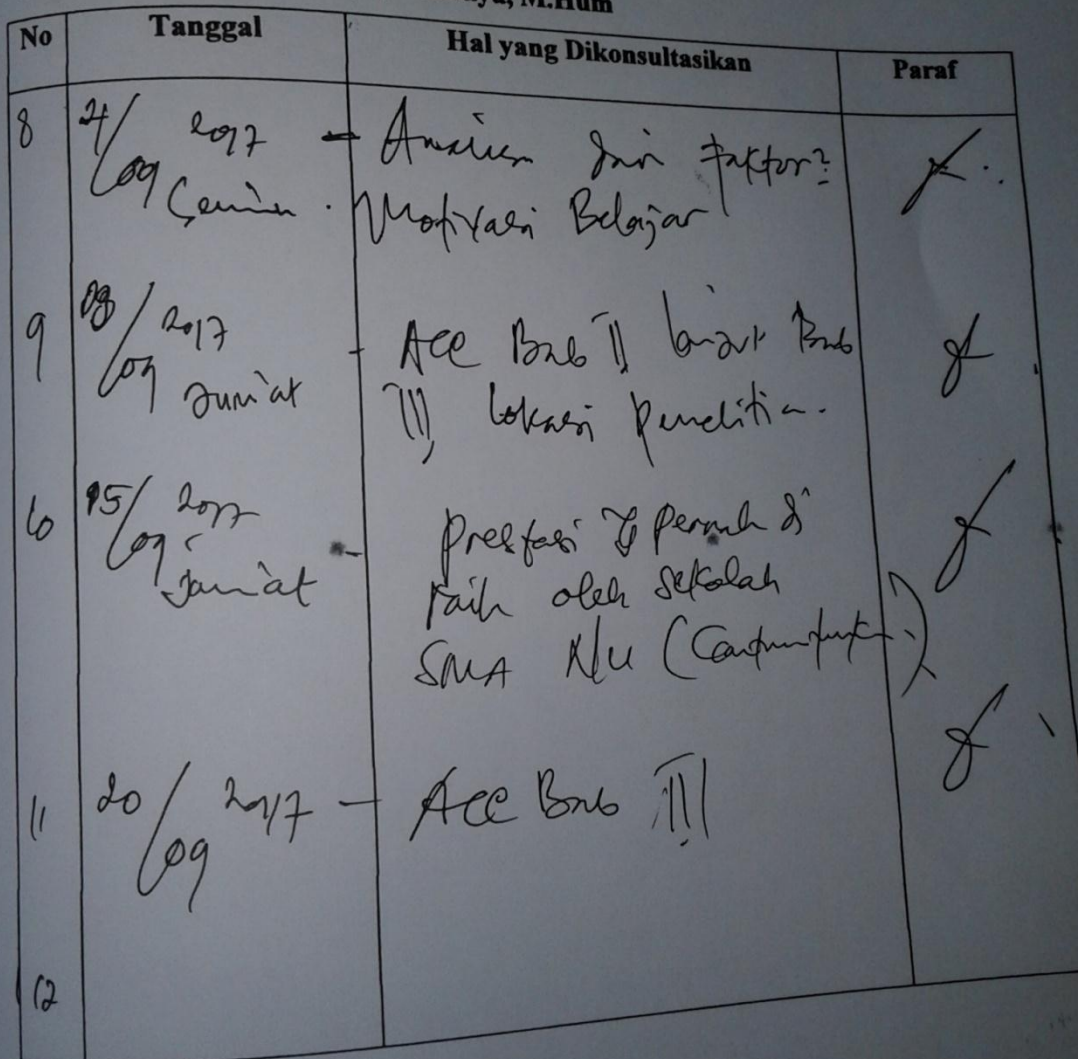 M.Hum
No Tanggal Hal yang Dikonsultasikan Paraf
8 4/09 2017 Senin - Analisa dari faktor2
Motivasi Belajar
9 08/09 2017 Jum'at - Acc Bab II lanjut Bab
III, lokasi penelitian.
10 15/09 2017 Jum'at - Prestasi yg pernah di
raih oleh sekolah
SMA NU (Cantumkan)
11 20/09 2017 - Acc Bab III
12